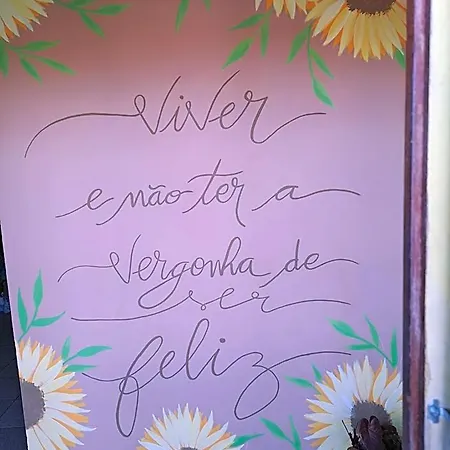 Viver
e não ter a
vergonha de
ser
feliz